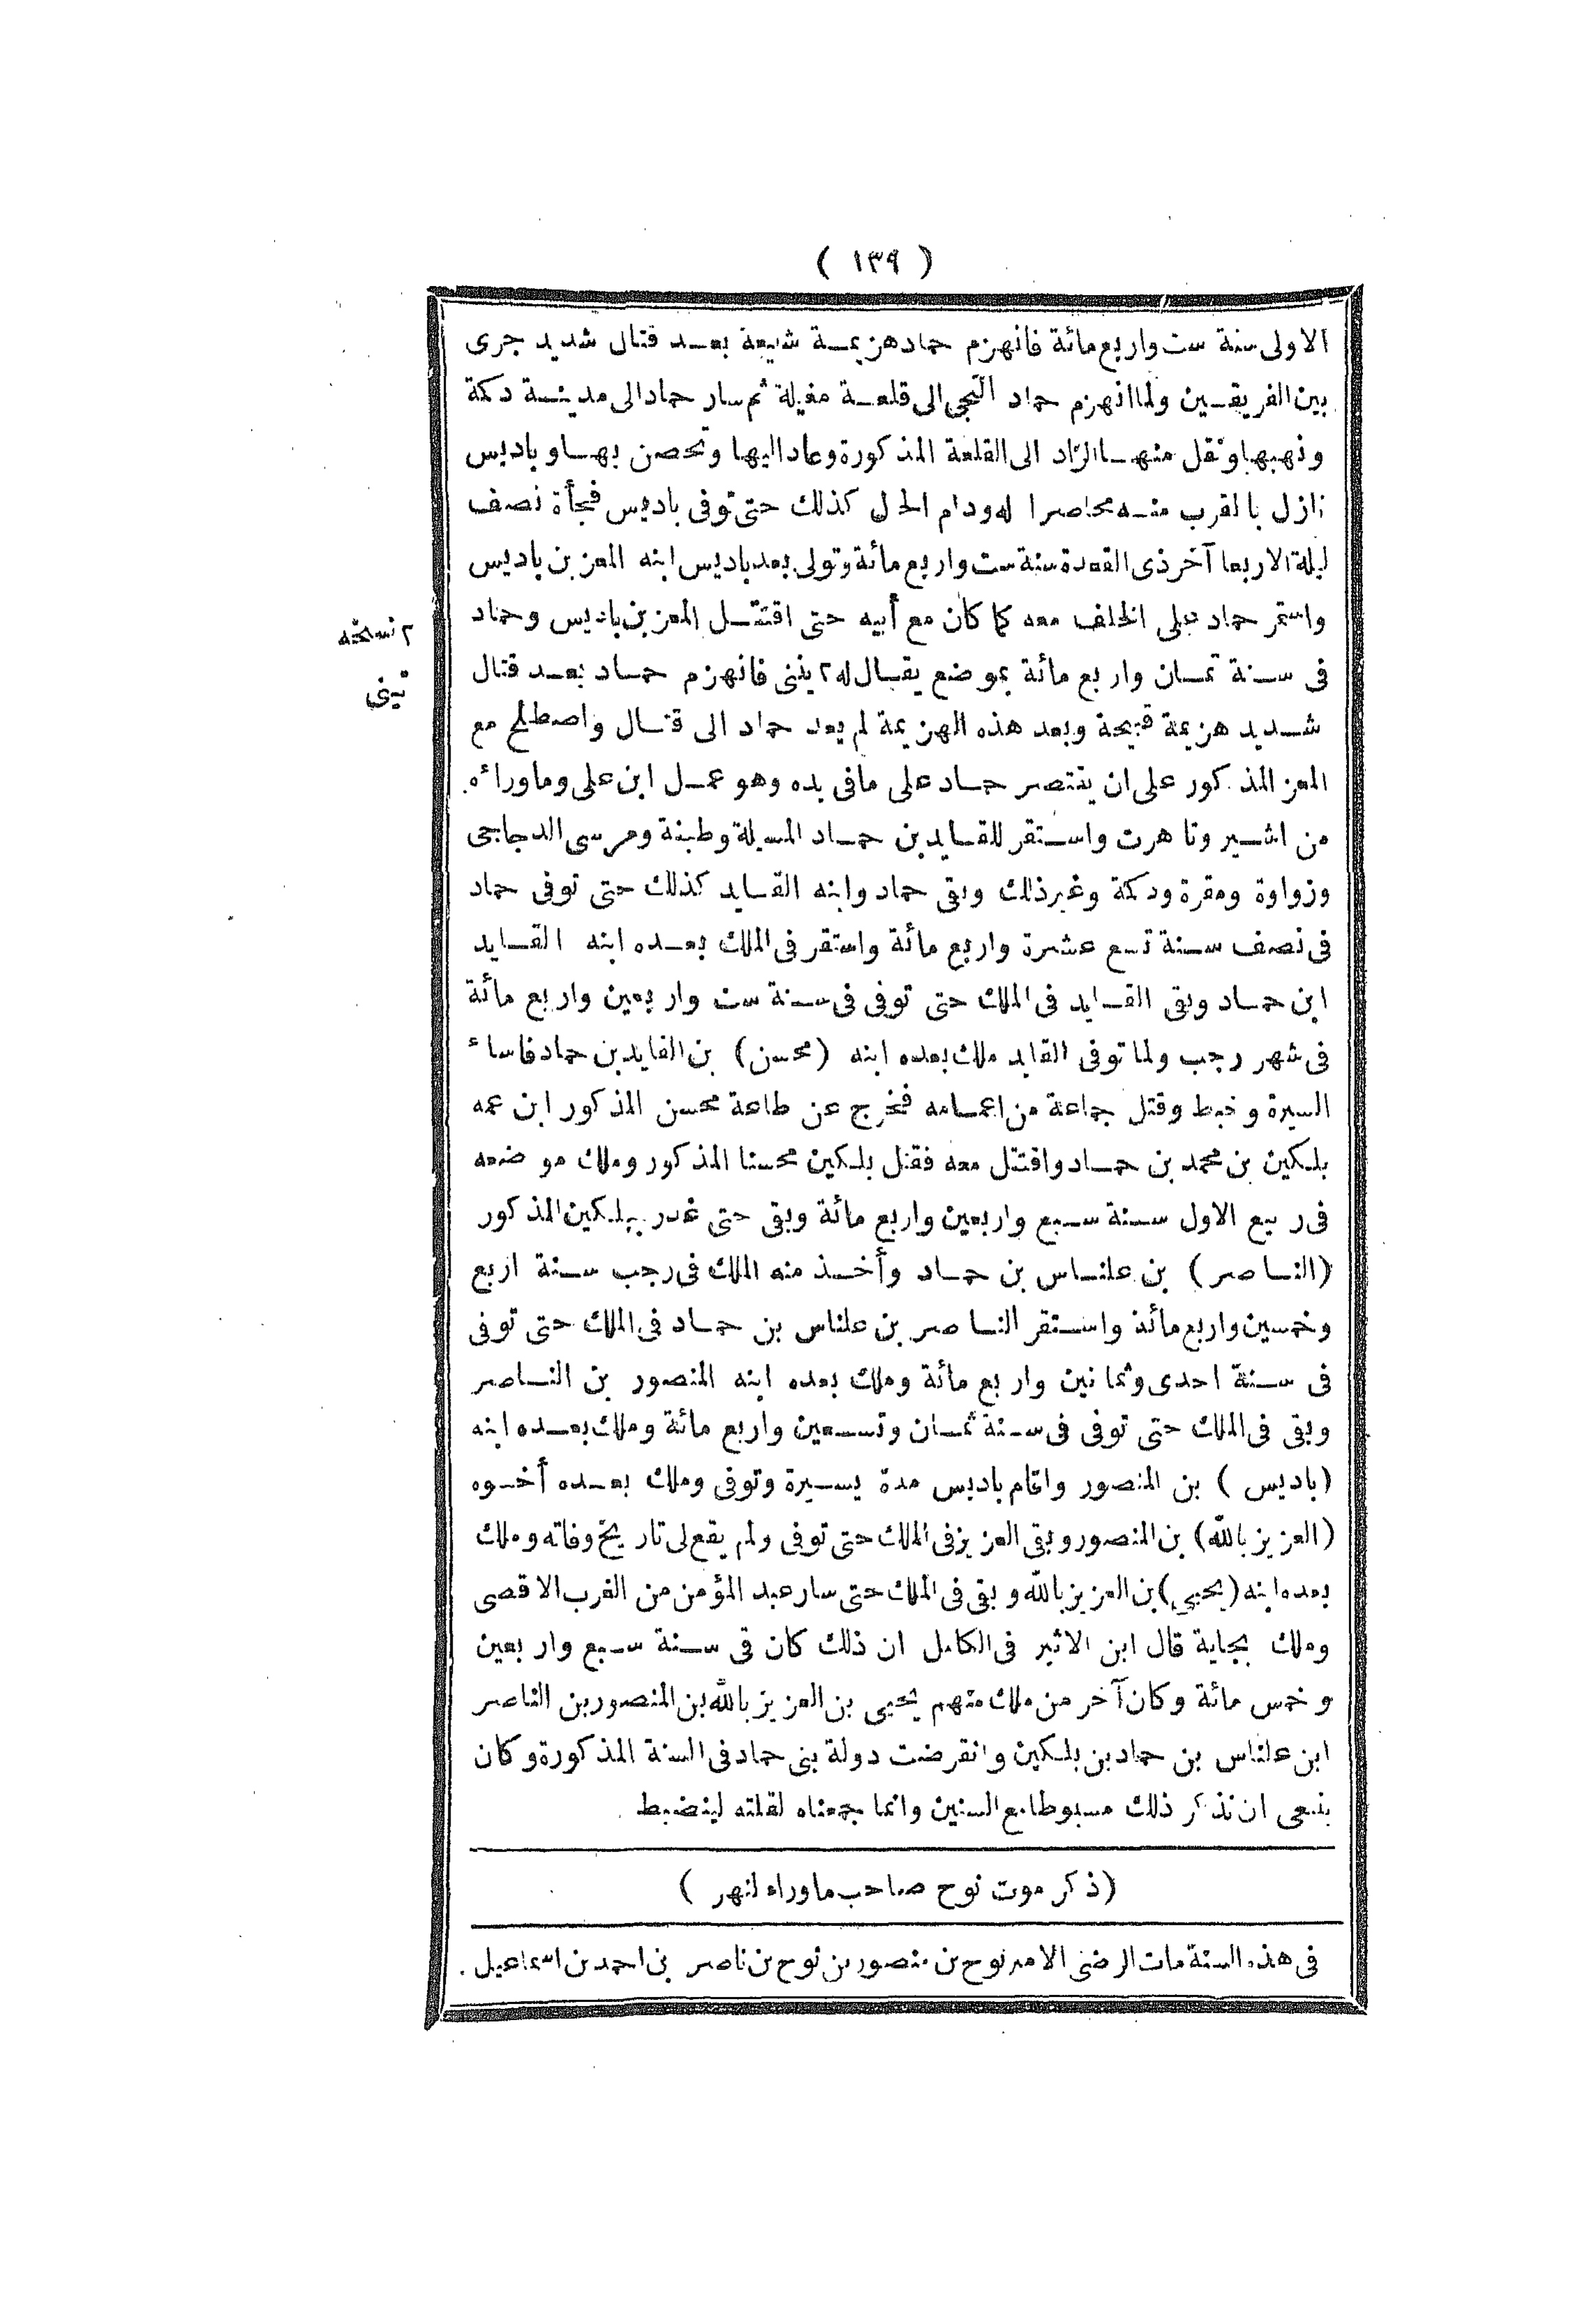 ( ١٣٩ )
الاولى سنة ست واربع مائة فانهزم حماد هزيمة شنيعة بعد قتال شديد جرى
بين الفريقين ولما انهزم حماد التجى الى قلعة مغيلة ثم سار حماد الى مدينة دكمة
ونهبها ونقل منها الزاد الى القلعة المذكورة وعاد اليها وتحصن بها وباديس
نازل بالقرب منه محاصرا له ودام الحال كذلك حتى توفى باديس فجأة نصف
ليلة الاربعا آخر ذى القعدة سنة ست واربع مائة وتولى بعد باديس ابنه المعز بن باديس
واستمر حماد على الخلف معه كما كان مع أبيه حتى اقتتل المعز بن باديس وحماد
فى سنة ثمان واربع مائة بموضع يقال له ٢ ينى فانهزم حماد بعد قتال
٢ نسخه
تينى
شديد هزيمة قبيحة وبعد هذه الهزيمة لم يعد حماد الى قتال واصطلح مع
المعز المذكور على ان يقتصر حماد على مافى يده وهو عمل ابن على وماورائه
من اشير وتاهرت واستقر للقايد بن حماد المسيلة وطبنة ومرسى الدجاجى
وزواوة ومقرة ودكمة وغير ذلك وبقى حماد وابنه القايد كذلك حتى توفى حماد
فى نصف سنة تسع عشرة واربع مائة واستقر فى الملك بعده ابنه القايد
ابن حماد وبقى القايد فى الملك حتى توفى فى سنة ست واربعين واربع مائة
فى شهر رجب ولما توفى القايد ملك بعده ابنه (محسن) بن القايد بن حماد فاساء
السيرة وخبط وقتل جماعة من اعمامه فخرج عن طاعة محسن المذكور ابن عمه
بلكين بن محمد بن حماد واقتتل معه فقتل بلكين محسنا المذكور وملك موضعه
فى ربيع الاول سنة سبع واربعين واربع مائة وبقى حتى غدر ببلكين المذكور
(الناصر) بن علناس بن حماد وأخذ منه الملك فى رجب سنة اربع
وخمسين واربع مائة واستقر الناصر بن علناس بن حماد فى الملك حتى توفى
فى سنة احدى وثمانين واربع مائة وملك بعده ابنه المنصور بن الناصر
وبقى فى الملك حتى توفى فى سنة ثمان وتسعين واربع مائة وملك بعده ابنه
(باديس) بن المنصور واقام باديس مدة يسيرة وتوفى وملك بعده أخوه
(العزيز بالله) بن المنصور وبقى العزيز فى الملك حتى توفى ولم يقع لى تاريخ وفاته وملك
بعده ابنه (يحيى) بن العزيز بالله وبقى فى الملك حتى سار عبد المؤمن من الغرب الاقصى
وملك بجاية قال ابن الاثير فى الكامل ان ذلك كان فى سنة سبع واربعين
وخمس مائة وكان آخر من ملك منهم يحيى بن العزيز بالله بن المنصور بن الناصر
ابن علناس بن حماد بن بلكين وانقرضت دولة بنى حماد فى السنة المذكورة وكان
ينبغى ان نذكر ذلك مبسوطا مع السنين وانما جمعناه لقلته لينضبط
(ذكر موت نوح صاحب ماوراء لنهر)
فى هذه السنة مات الرضى الامير نوح بن منصور بن نوح بن ناصر بن احمد بن اسماعيل .